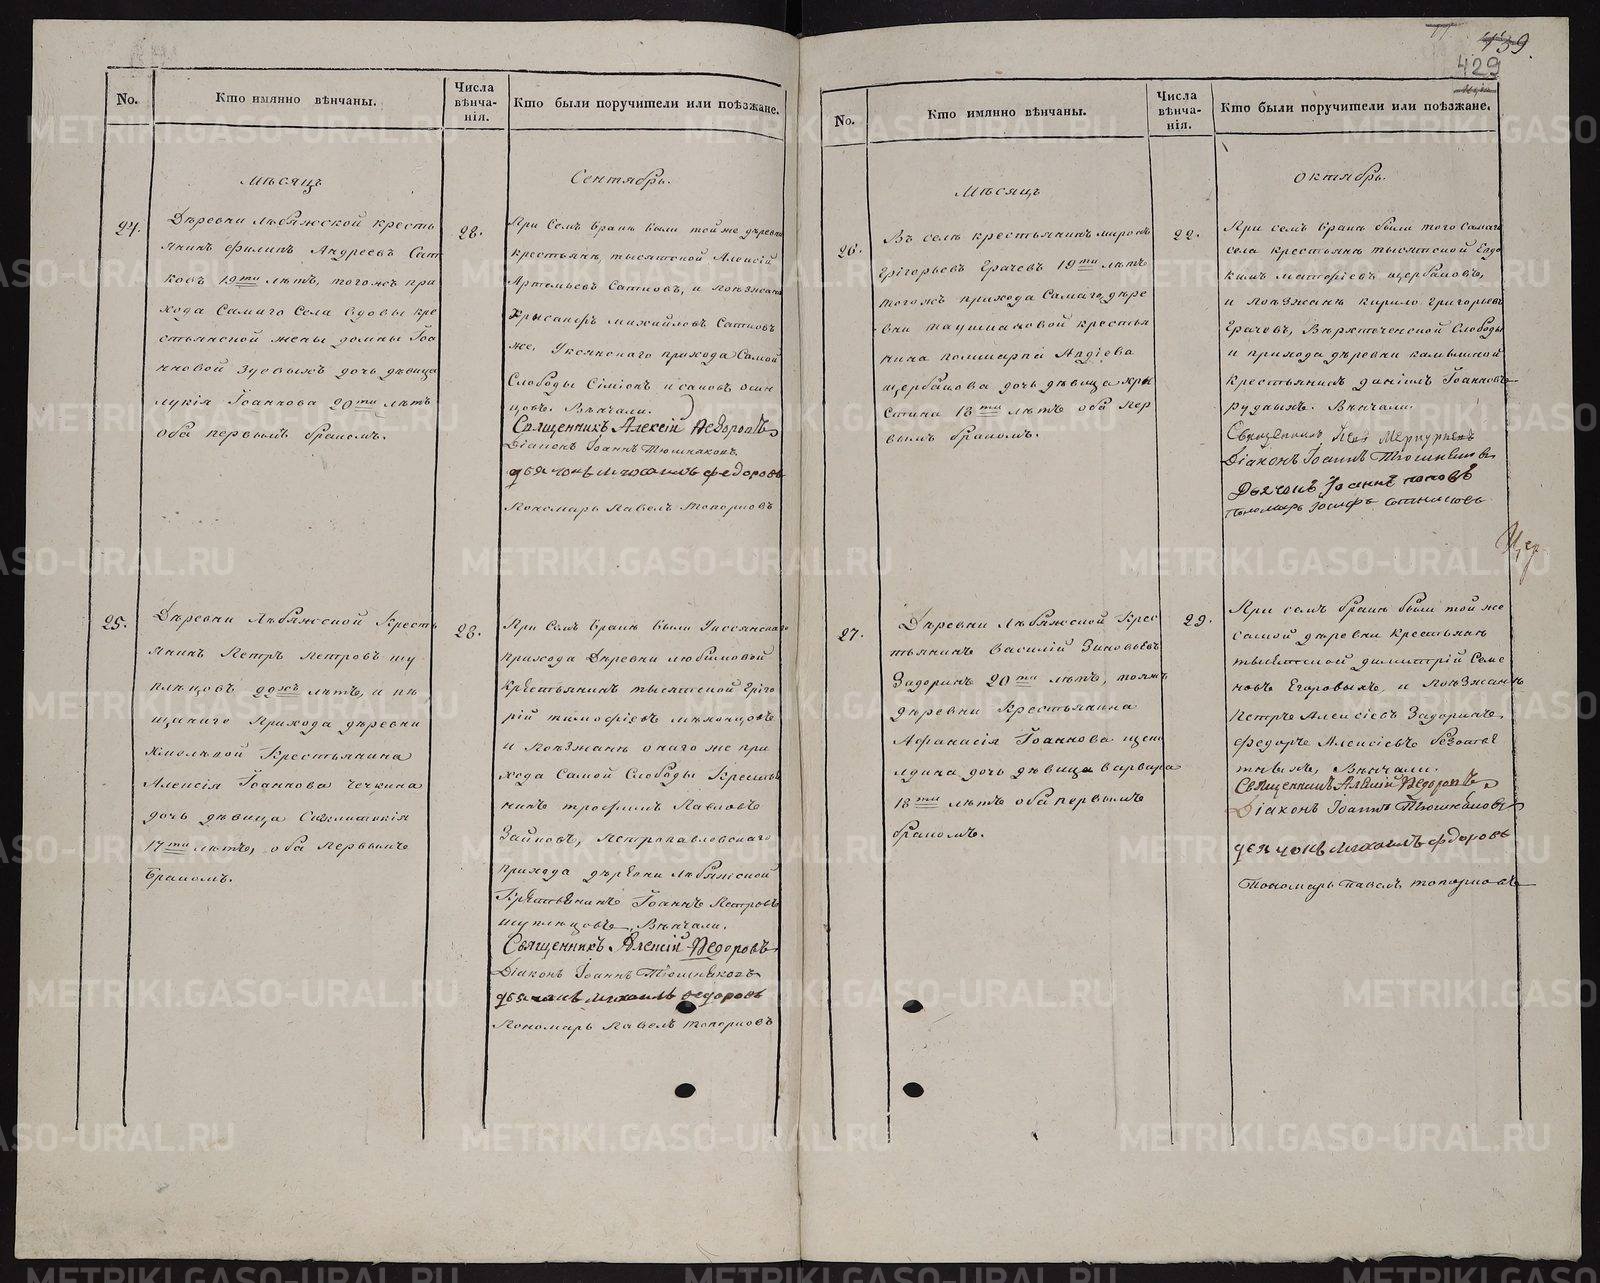 429
No.
Кто имянно вѣнчаны.
Числа вѣнча-нія.
Кто были поручители или поѣзжане.
Мѣсяцъ
Сентябрь.
24.
Деревни Лебяжской кресть
янинъ Филипъ Андреевъ Сат
ковъ 19ти лѣтъ, тогожъ при
хода Самаго Села вдовы кре
стьянской жены домны Іоа
нновой Зуевыхъ дочь дѣвица
лукія Іоаннова 20ти лѣтъ
оба первымъ бракомъ.
28.
При Семъ бракѣ были той же деревни
крестьяне, тысятской Алексій
Артемьевъ Сатковъ, и поѣзжане
Хрисанфъ михайловъ Сатковъ
же, Уксянскаго прихода Самой
Слободы Сіміонъ
цовъ. Вѣнчали.
Священникъ Алексій Ѳедоровъ
Діаконъ Іоаннъ Тюшняковъ
дьячокъ михаилъ федоровъ
Пономарь Павелъ топорковъ
25.
Деревни Лебяжской Кресть
янинъ Петръ Петровъ шу
плецовъ 22хъ лѣтъ, и пе
щанаго Прихода деревни
Крестьянина
Алексія Іоаннова Чечкина
дочь дѣвица Секлитикія
17ти лѣтъ, оба Первымъ
бракомъ.
28.
При Семъ бракѣ были Уксянскаго
прихода Деревни любимовой
крестьянинъ тысятской Григо
рій тимофіевъ
и Поѣзжане онаго же при
хода Самой Слободы Крестья
нинъ трофимъ Павловъ
Зайковъ, Петропавловскаго
прихода деревни Лебяжской
Крестьянинъ Іоаннъ Петровъ
шуплецовъ, Вѣнчали.
Священникъ Алексій Ѳедоровъ
Діаконъ Іоаннъ Тюшняковъ
дьячокъ михаилъ федоровъ
Пономарь Павелъ топорковъ
No.
Кто имянно вѣнчаны.
Числа вѣнча-нія.
Кто были поручители или поѣзжане.
Мѣсяцъ
Октябрь.
26.
Въ селѣ крестьянинъ миронъ
Григорьевъ Грачевъ 19ти лѣтъ
тогожъ прихода Самаго дере
вни таушкановой крестья
нина поликарпа Авдіева
щербакова дочь дѣвица хри
стина 18ти лѣтъ оба пер
вымъ бракомъ.
22.
При семъ бракѣ были того Самаго
села крестьяне тысятской Евдо
кимъ матфіевъ щербаковъ,
и поѣзжане кирило григорьевъ
Грачевъ, Верхтеченской Слободы
и прихода деревни камышной
крестьянинъ даніилъ Іоанновъ
рудныхъ. Вѣнчали.
Священникъ Меркурьевъ
Діаконъ Іоаннъ Тюшняковъ
Дьячокъ Іоаннъ поповъ
Пономарь Іосифъ
27.
Деревни Лебяжской Крес
тьянинъ Василій Зиновьевъ
Задоринъ 20ти лѣтъ, тояжъ
деревни Крестьянина
Афанасія Іоаннова щене
лдина дочь дѣвица варвара
18ти лѣтъ оба первымъ
бракомъ.
29.
При семъ бракѣ были той же
самой деревни крестьяне
тысятской димитрій Семе
новъ Егоровыхъ, и Поѣзжане
Петръ Алексіевъ Задоринъ,
федоръ Алексіевъ безотве
тныхъ, Вѣнчали.
Священникъ Алексій Ѳедоровъ
Діаконъ Іоаннъ Тюшняковъ
дьячокъ михаилъ федоровъ
Пономарь павелъ топорковъ
METRIKI.GASO-URAL.RU